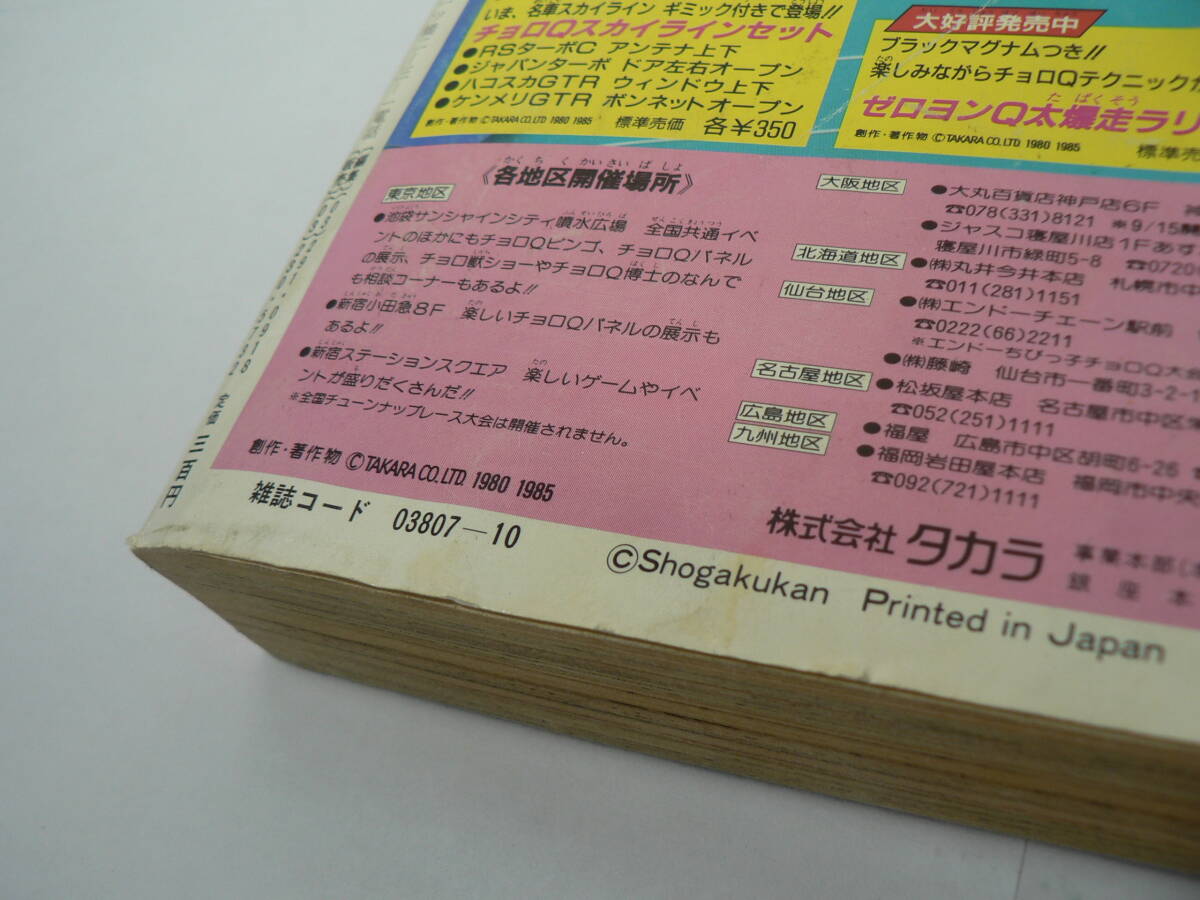 いま、名車スカイライン ギミック付きで登場!!
チョロQスカイラインセット
●RSターボC アンテナ上下
●ジャパンターボ ドア左右オープン
●ハコスカGTR ウィンドウ上下
●ケンメリGTR ボンネットオープン
創作・著作物 ©TAKARA CO.,LTD. 1980 1985 標準売価 各¥350
大好評発売中
ブラックマグナムつき!!
楽しみながらチョロQテクニックが
ゼロヨンQ太爆走ラリ
創作・著作物 ©TAKARA CO.,LTD. 1980 1985 標準売
《各地区開催場所》
東京地区
●池袋サンシャインシティ噴水広場 全国共通イベ
ントのほかにもチョロQビンゴ、チョロQパネル
の展示、チョロ獣ショーやチョロQ博士のなんで
も相談コーナーもあるよ!!
●新宿小田急8F 楽しいチョロQパネルの展示も
あるよ!!
●新宿ステーションスクエア 楽しいゲームやイベ
ントが盛りだくさんだ!!
※全国チューンナップレース大会は開催されません。
大阪地区
●大丸百貨店神戸店6F
☎078(331)8121 ※9/15
●ジャスコ寝屋川店1Fあす
寝屋川市緑町5-8 ☎0720
北海道地区
●㈱丸井今井本店 札幌市中
☎011(281)1151
仙台地区
●㈱エンドーチェーン駅前
☎0222(66)2211
※エンドーちびっ子チョロQ大会
●㈱藤崎 仙台市一番町3-2-1
名古屋地区
●松坂屋本店 名古屋市中区栄
☎052(251)1111
広島地区
●福屋 広島市中区胡町6-26
九州地区
●福岡岩田屋本店 福岡市中央
☎092(721)1111
創作・著作物 ©TAKARA CO.,LTD. 1980 1985
株式会社 タカラ
事業本部
銀座本
雑誌コード 03807-10
©Shogakukan Printed in Japan
定価 三百円